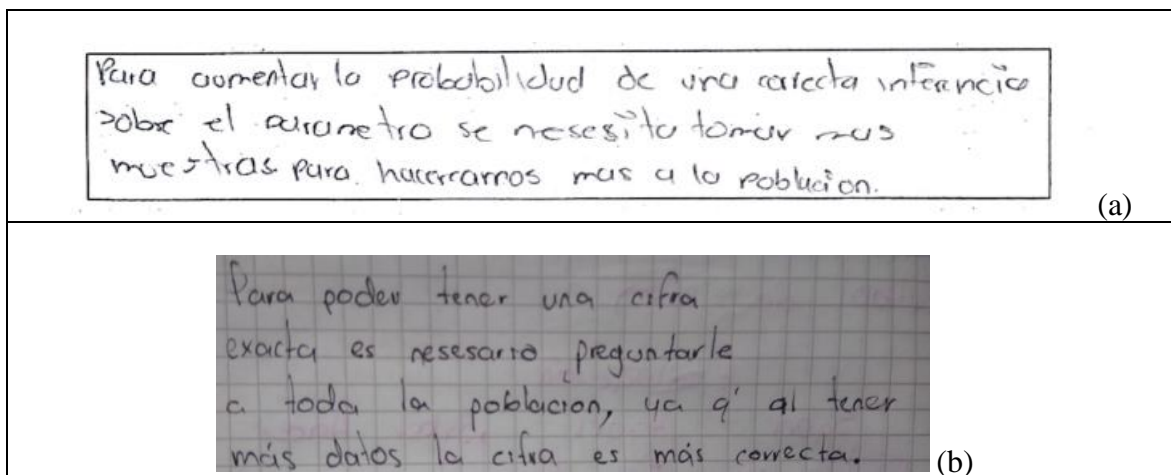 Para aumentar la probabilidad de una correcta inferencia
sobre el parametro se nesesita tomar mas
muestras para hacercarnos mas a la poblacion.
(a)
Para poder tener una cifra
exacta es nesesario preguntarle
a toda la población, ya q' al tener
más datos la cifra es más correcta.
(b)